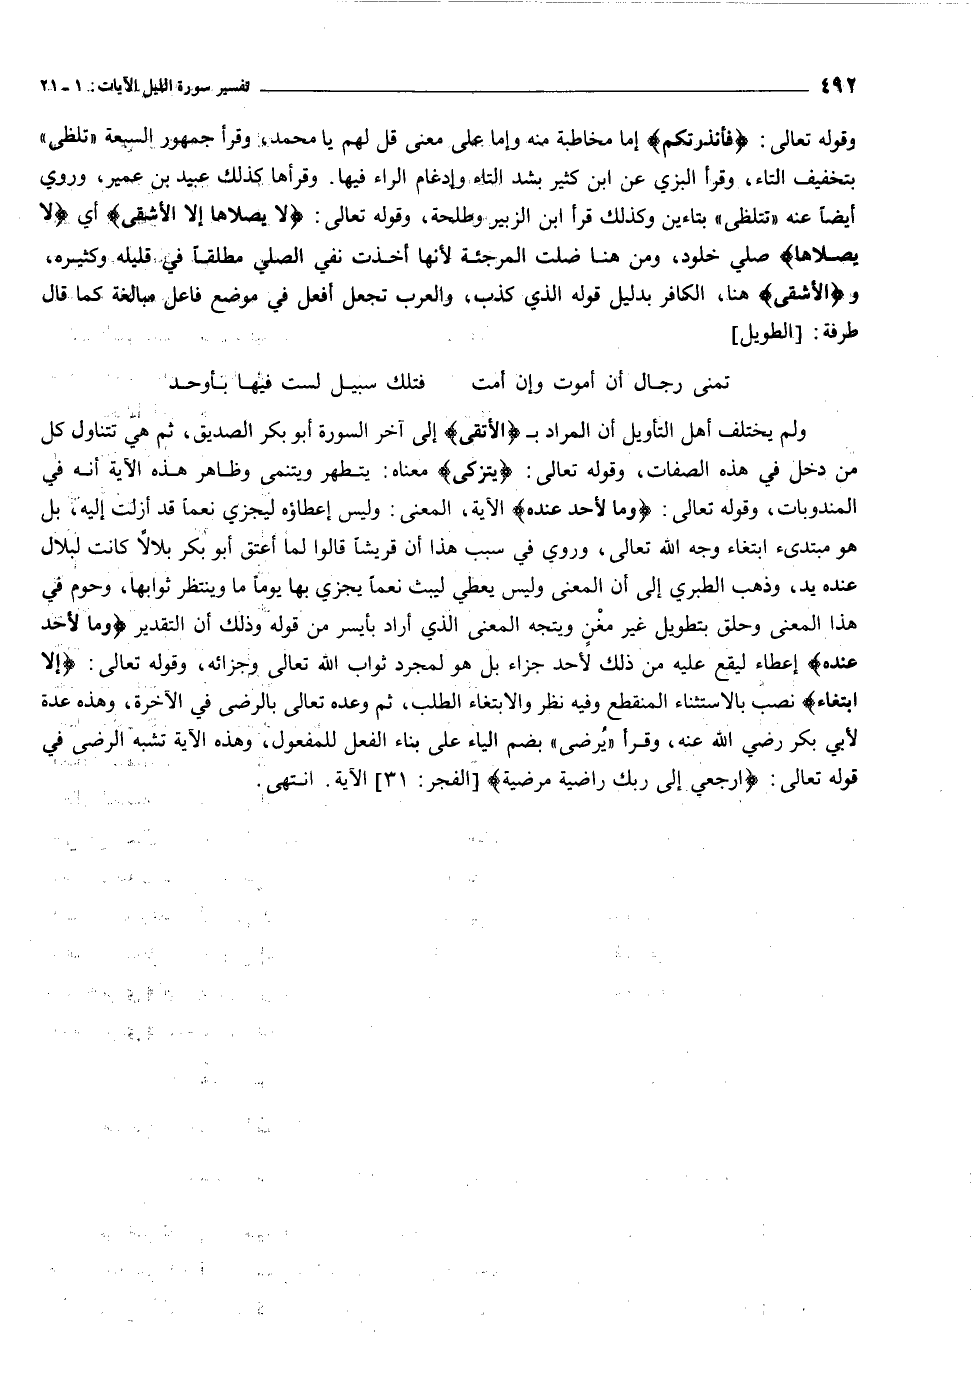 ٤٩٢ تفسير سورة الليل الآيات: ١ - ٢١
وقوله تعالى: ﴿فأنذرتكم﴾ إما مخاطبة منه وإما على معنى قل لهم يا محمد، وقرأ جمهور السبعة «تلظى»
بتخفيف التاء، وقرأ البزي عن ابن كثير بشد التاء وإدغام الراء فيها. وقرأها كذلك عبيد بن عمير، وروي
أيضاً عنه «تتلظى» بتاءين وكذلك قرأ ابن الزبير وطلحة، وقوله تعالى: ﴿لا يصلاها إلا الأشقى﴾ أي ﴿لا
يصلاها﴾ صلي خلود، ومن هنا ضلت المرجئة لأنها أخذت نفي الصلي مطلقاً في قليله وكثيره،
و﴿الأشقى﴾ هنا، الكافر بدليل قوله الذي كذب، والعرب تجعل أفعل في موضع فاعل مبالغة كما قال
طرفة: [الطويل]
تمنى رجال أن أموت وإن أمت فتلك سبيل لست فيها بأوحد
ولم يختلف أهل التأويل أن المراد بـ ﴿الأتقى﴾ إلى آخر السورة أبو بكر الصديق، ثم هي تتناول كل
من دخل في هذه الصفات، وقوله تعالى: ﴿يتزكى﴾ معناه: يتطهر ويتنمى وظاهر هذه الآية أنه في
المندوبات، وقوله تعالى: ﴿وما لأحد عنده﴾ الآية، المعنى: وليس إعطاؤه ليجزي نعماً قد أزلت إليه، بل
هو مبتدىء ابتغاء وجه الله تعالى، وروي في سبب هذا أن قريشاً قالوا لما أعتق أبو بكر بلالًا كانت لبلال
عنده يد، وذهب الطبري إلى أن المعنى وليس يعطي ليبث نعماً يجزي بها يوماً ما وينتظر ثوابها، وحوم في
هذا المعنى وحلق بتطويل غير مغْنٍ ويتجه المعنى الذي أراد بأيسر من قوله وذلك أن التقدير ﴿وما لأحد
عنده﴾ إعطاء ليقع عليه من ذلك لأحد جزاء بل هو لمجرد ثواب الله تعالى وجزائه، وقوله تعالى: ﴿إلا
ابتغاء﴾ نصب بالاستثناء المنقطع وفيه نظر والابتغاء الطلب، ثم وعده تعالى بالرضى في الآخرة، وهذه عدة
لأبي بكر رضي الله عنه، وقرأ «يُرضى» بضم الياء على بناء الفعل للمفعول، وهذه الآية تشبه الرضى في
قوله تعالى: ﴿ارجعي إلى ربك راضية مرضية﴾ [الفجر: ٣١] الآية. انتهى.